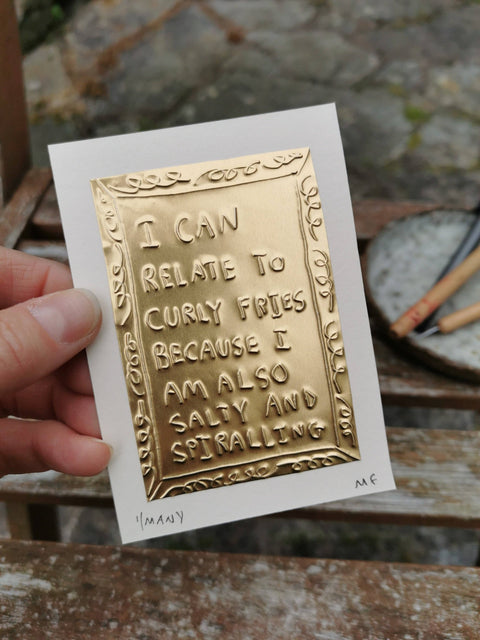 I CAN
RELATE TO
CURLY FRIES
BECAUSE I
AM ALSO
SALTY AND
SPIRALLING
1/MANY
MF